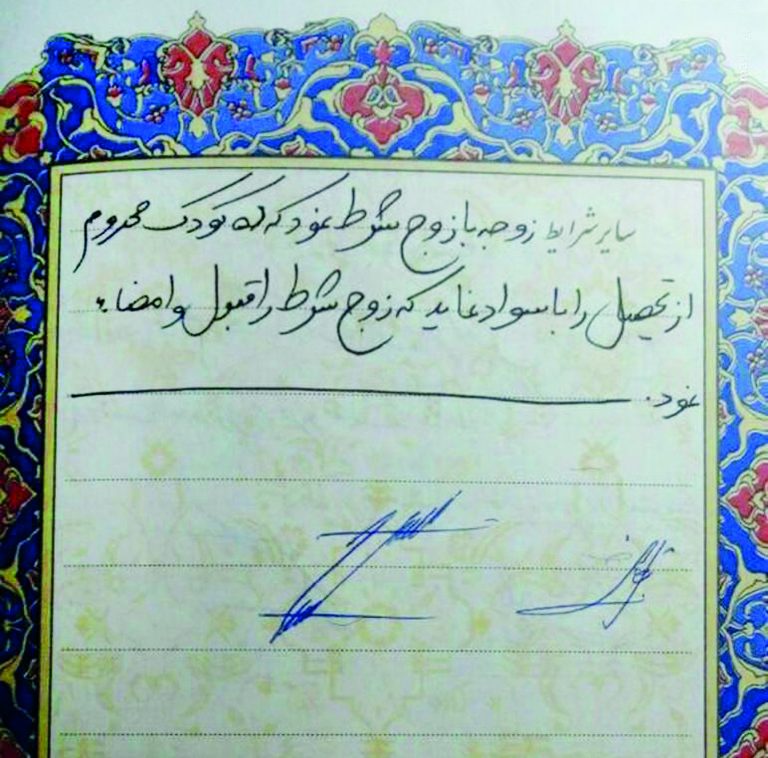 سایر شرایط زوجه با زوج شرط نمود که کودک محروم
از تحصیل را باسواد نماید که زوج شرط را قبول و امضاء
نمود.